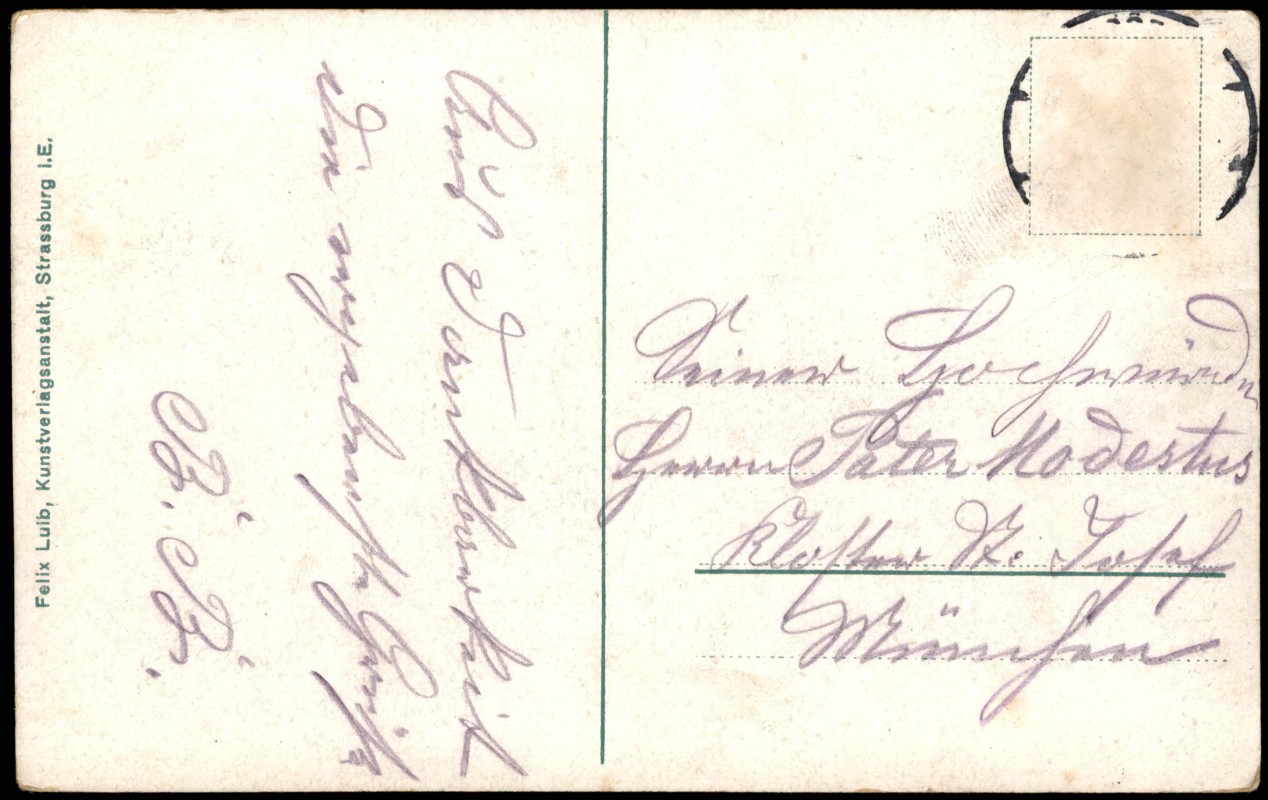 Aus Dankbarkeit
die ergebenste Grüße
B. B.
Seiner Hochwürden
Herrn Pater Modestus
Kloster St. Josef
München
Felix Luib, Kunstverlagsanstalt, Strassburg i.E.